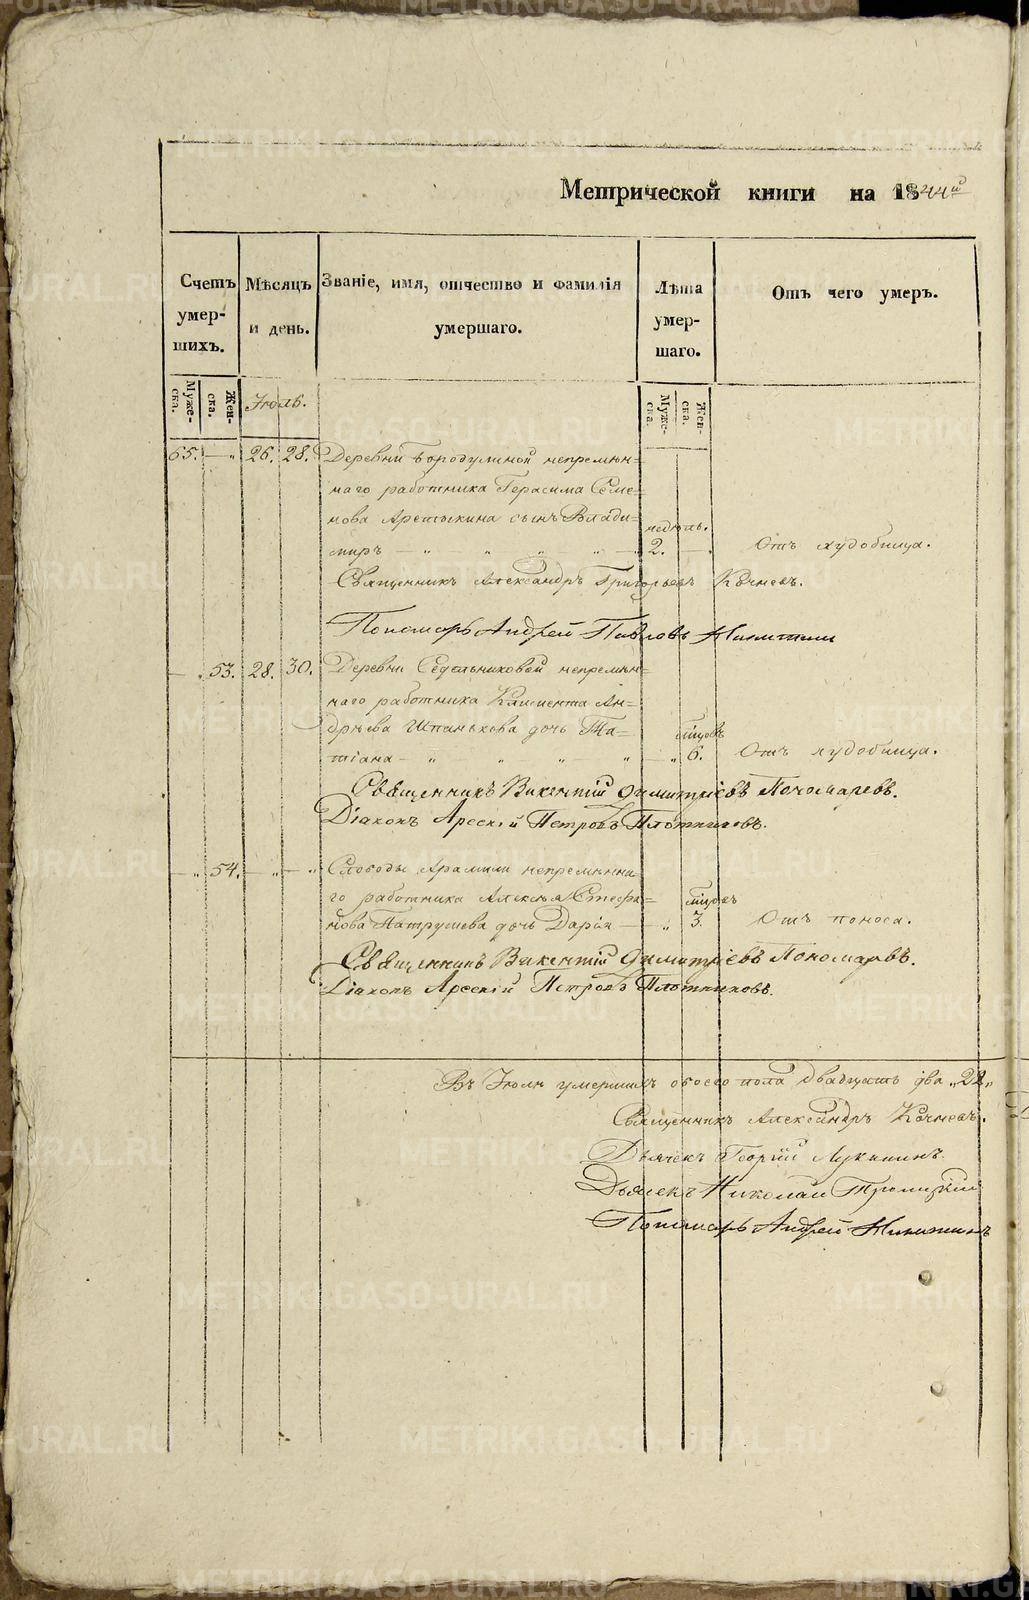 Метрической книги на 1844й
Счетъ умер-шихъ.
Мѣсяцъ и день.
Званіе, имя, отчество и фамилія умершаго.
Лѣта умер-шаго.
Отъ чего умеръ.
Муже-ска.
Жен-ска.
Іюль.
Муже-ска.
Жен-ска.
65. — „ 26. 28. Деревни Бородулиной непремѣн=
наго работника Герасима Семе=
нова Аретькина сынъ Влади=
миръ — „ „ „ „ — недѣль. 2. — Отъ худобища.
Священникъ Александръ Григорьевъ Кочневъ.
Пономарь Андрей Павловъ Никитинъ
— „ 53. 28. 30. Деревни Седельниковой непремѣн=
наго работника Климента Ан=
дрѣева Шпанькова дочь Та=
тіана — „ „ „ „ — „ мѣсяцовъ 6. Отъ худобища.
Священникъ Викентій Димитріевъ Пономаревъ.
Діаконъ Арсеній Петровъ Плотниковъ.
— „ 54. — „ — „ Слободы Арамили непремѣнна
го работника Алексѣя Стефа=
нова Патрушева дочь Дарія — „ мѣсяцовъ 3. Отъ поноса.
Священникъ Викентій Димитріевъ Пономаревъ.
Діаконъ Арсеній Петровъ Плотниковъ.
Въ Іюлѣ умершихъ обоего пола двадцать два „22„
Священникъ Александръ Кочневъ.
Дьячекъ Георгій Лукининъ.
Дьячекъ Николай Троицкій
Пономарь Андрей Никитинъ
METRIKI.GASO-URAL.RU